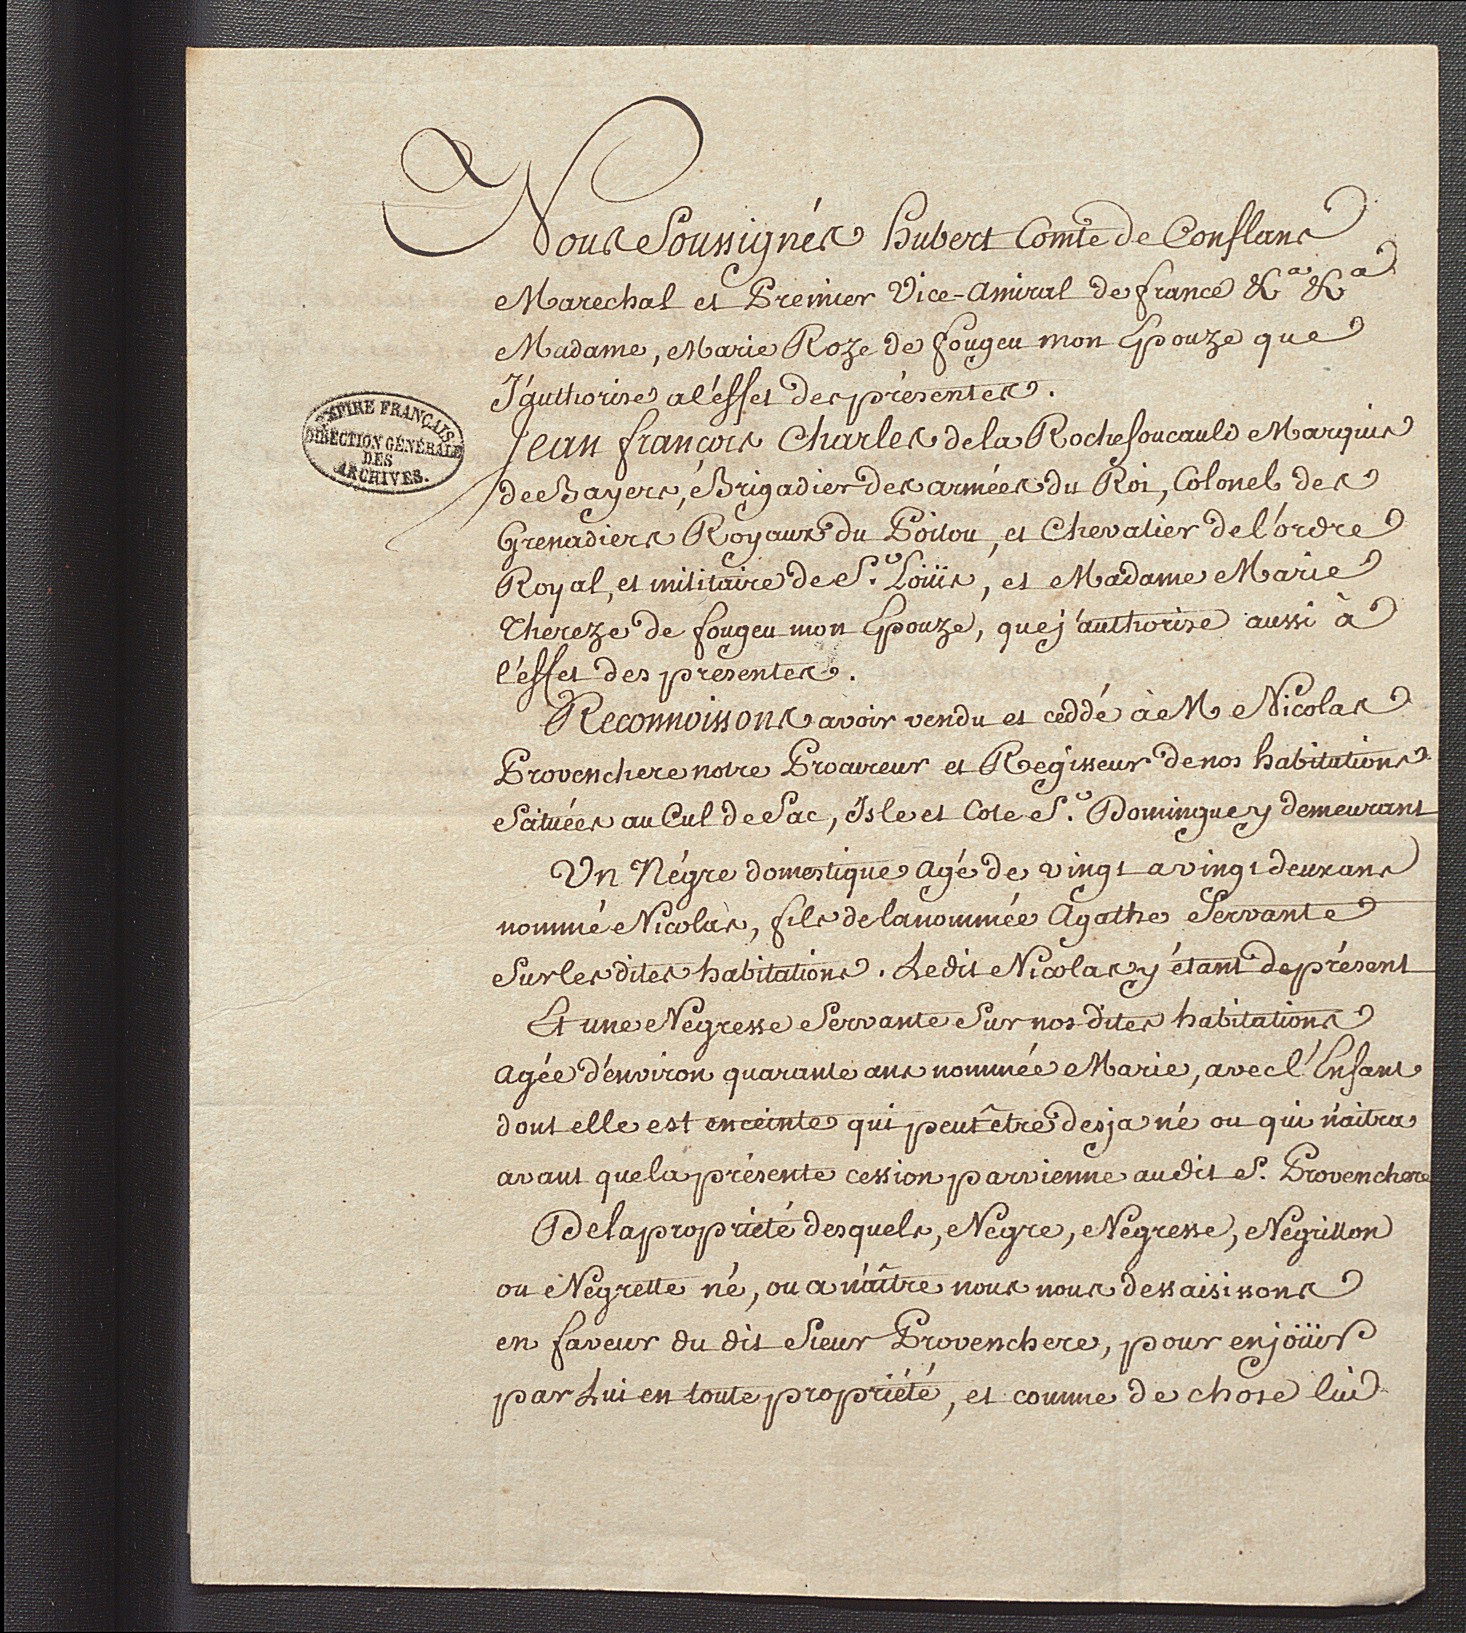 Nous Soussignés Hubert Comte de Conflans
Marechal et Premier Vice-Amiral de france &a &a
Madame, Marie Roze de fougeu mon Epouze que
J'authorise a l'éffet des présentes.
Jean françois Charles de la Rochefoucauld Marquis
de Bayers, Brigadier des armées du Roi, Colonel des
Grenadiers Royaux du Poitou, et Chevalier de l'ordre
Royal, et militaire de St. Loüis, et Madame Marie
Thereze de fougeu mon Epouze, que j'authorise aussi à
l'éffet des presentes.
Reconnoissons avoir vendu et ceddé à M Nicolas
Provenchere notre Procureur et Regisseur de nos habitations
Scituées au Cul de Sac, Isle et Cote St. Domingue y demeurant
Un Négre domestique agé de vingt a vingt deux ans
nommé Nicolas, fils de la nommée Agathe Servante
Sur les dites habitations. Ledit Nicolas y étant de présent
Et une Négresse Servante Sur nos dites habitations
agée d'énviron quarante ans nommée Marie, avec l'Enfant
dont elle est enceinte qui peut être desja né ou qui naitra
avant que la présente cession parvienne au dit S. Provenchere
De la propriété desquels, Negre, Négresse, Négrillon
ou Négrette né, ou a naître nous nous dessaisissons
en faveur du dit Sieur Provenchere, pour en joüir
par Lui en toute propriété, et comme de chose lui
EMPIRE FRANÇAIS
DIRECTION GÉNÉRALE
DES
ARCHIVES.